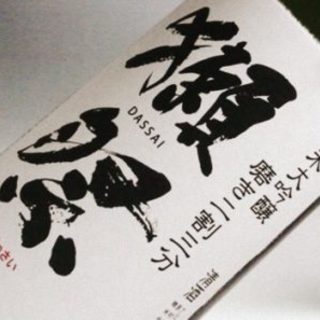 獺祭
DASSAI
米大吟醸
磨き二割三分
清酒
さい